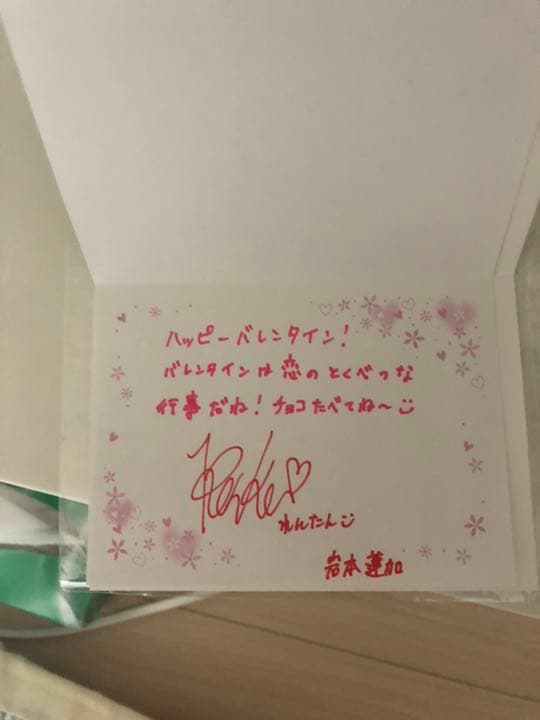 ハッピーバレンタイン!
バレンタインは恋のとくべつな
行事だね!チョコたべてね〜
れんたん
岩本蓮加